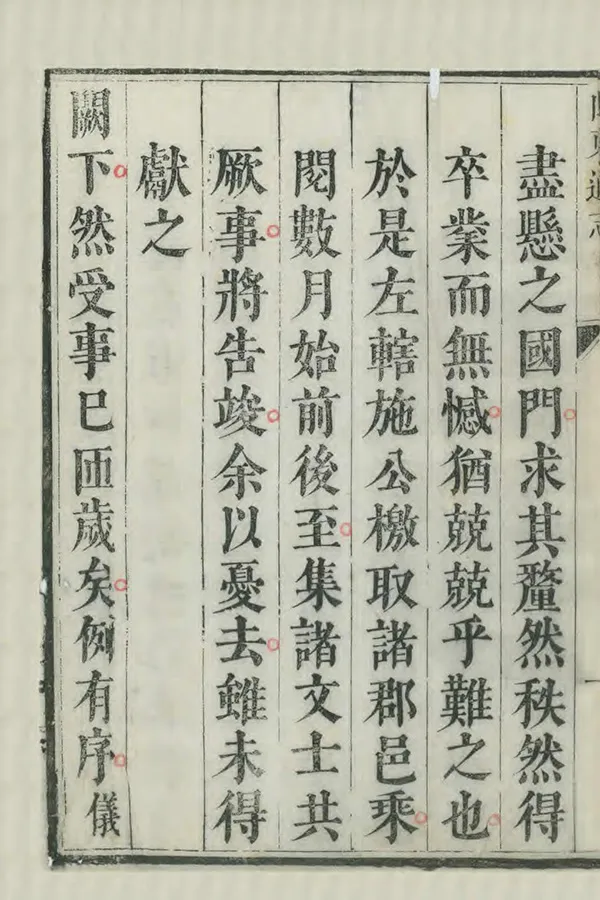 盡懸之國門求其釐然秩然得
卒業而無憾猶兢兢乎難之也
於是左轄施公檄取諸郡邑乘
閱數月始前後至集諸文士共
厥事將告竣余以憂去雖未得
獻之
闕下然受事已匝歲矣例有序儀